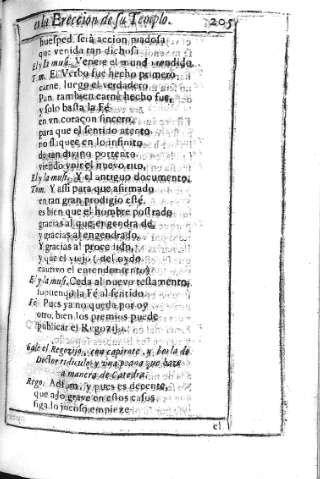 en la Ereccion de su Templo. 205
huesped, será accion piadosa
que venida tan dichosa
El y la mus. Venere el mundo rendido.
Tom. El Verbo fue hecho primero
carne, luego el verdadero
Pan, tambien carne hecho fue,
y solo basta la Fé
en vn coraçon sincero,
para que el sentido atento
no flaquee en lo infinito
de tan diuino portento
viendo
El y la mus. Y el antiguo documento,
Tom. Y assi para que afirmado
en tan gran prodigio esté,
es bien que el hombre postrado
gracias al que engendra dé,
y gracias al engendrado,
Y gracias al
y que el viejo (del oydo
cautivo el entendimiento)
El y la mus. Ceda al nuevo testamento,
suponga la Fé al sentido.
Fé. Pues ya no queda por oy
otro, bien los premios puede
publicar el Regozijo.
Sale el Regozijo, con capirote, y borla de
Doctor ridiculo, y vna que haze
a manera de Catedra.
Rego. Ad sum, y pues es decente,
que a lo grave en estos casos
siga lo jocoso, empieze
el